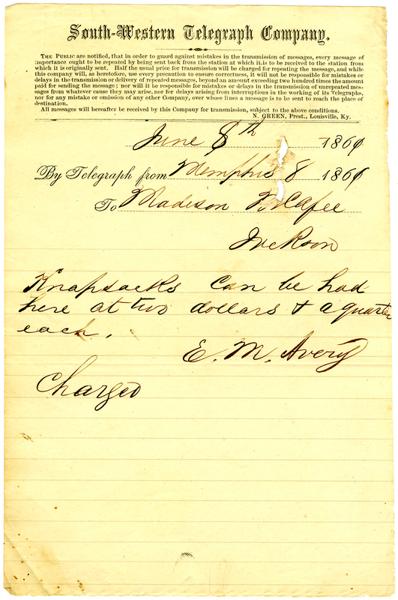 South-Western Telegraph Company.
The Public are notified, that in order to guard against mistakes in the transmission of messages, every message of
importance ought to be repeated by being sent back from the station at which it is to be received to the station from
which it is originally sent. Half the usual price for transmission will be charged for repeating the message, and while
this company will, as heretofore, use every precaution to ensure correctness, it will not be responsible for mistakes or
delays in the transmission or delivery of repeated messages, beyond an amount exceeding two hundred times the amount
paid for sending the message; nor will it be responsible for mistakes or delays in the transmission of unrepeated messages
from whatever cause they may arise, nor for delays arising from interruptions in the working of its Telegraphs,
nor for any mistake or omission of any other Company, over whose lines a message is to be sent to reach the place of
destination.
All messages will hereafter be received by this Company for transmission, subject to the above conditions.
N. GREEN, Prest., Louisville, Ky.
June 8th 1861
By Telegraph from Memphis 8 1861
To Madison McAfee
Jackson
Knapsacks can be had
here at two dollars & a quarter
each.
E. M. Avery
Charged